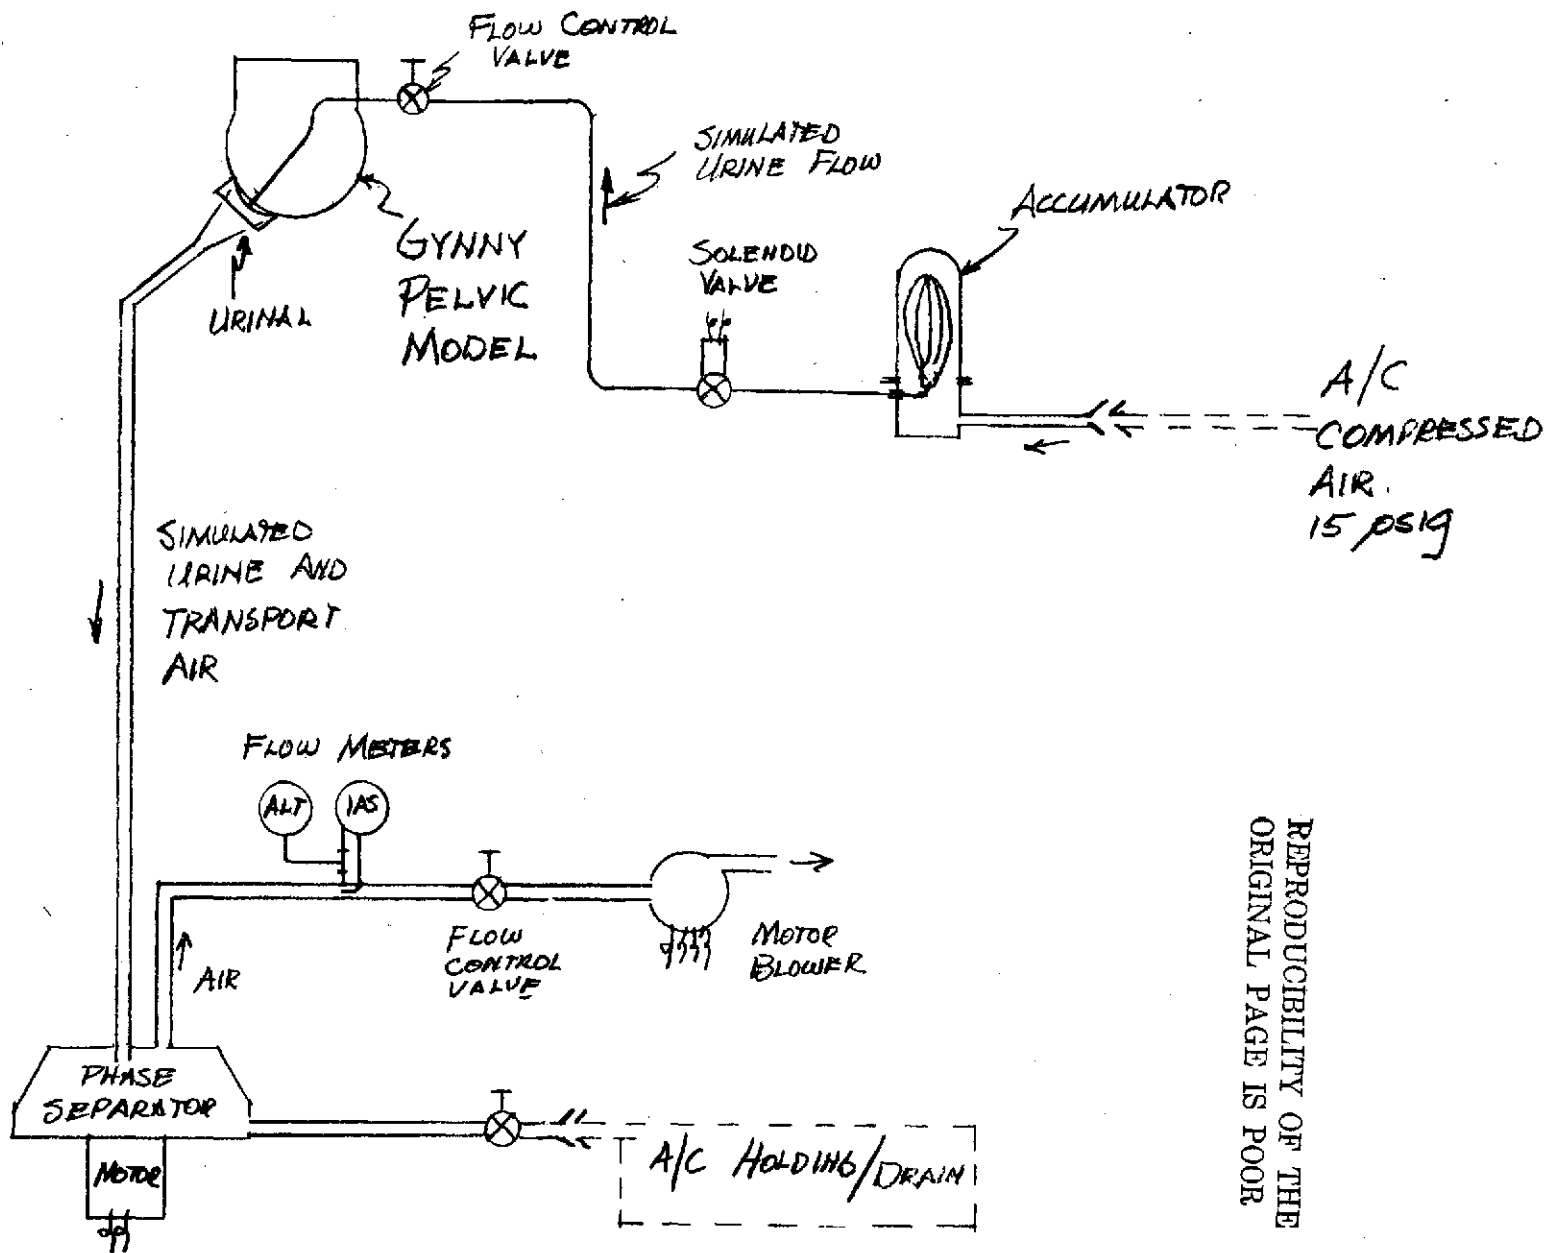 FLOW CONTROL
VALVE
SIMULATED
URINE FLOW
ACCUMULATOR
GYNNY
PELVIC
MODEL
SOLENOID
VALVE
URINAL
A/C
COMPRESSED
AIR.
15 psig
SIMULATED
URINE AND
TRANSPORT
AIR
FLOW METERS
ALT
IAS
FLOW
CONTROL
VALVE
MOTOR
BLOWER
AIR
PHASE
SEPARATOR
MOTOR
A/C HOLDING/DRAIN
REPRODUCIBILITY OF THE
ORIGINAL PAGE IS POOR